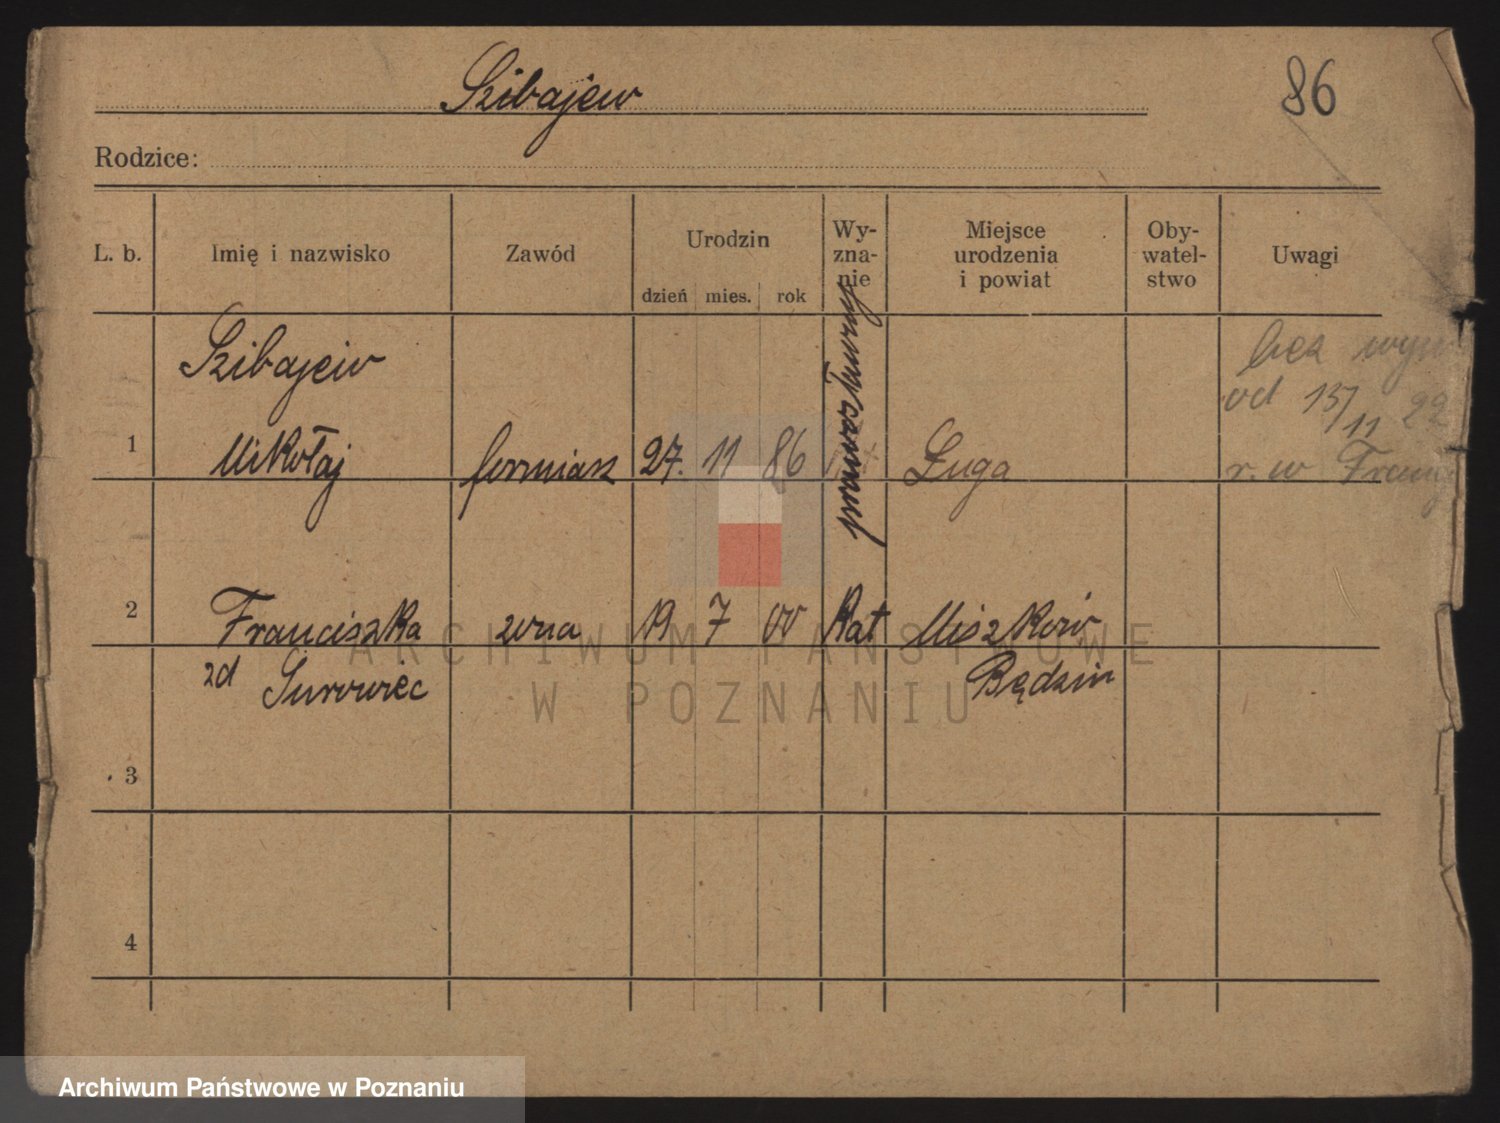 Szibajew
86
Rodzice:
L. b.
Imię i nazwisko
Zawód
Urodzin
dzień mies. rok
Wy-
zna-
nie
Miejsce
urodzenia
i powiat
Oby-
watel-
stwo
Uwagi
Szibajew
1 Mikołaj formiarz 27. 11 86 prawosławny Ługa
bez
od 15/11 22
r. w
2 Franciszka żona 19 7 00 Kat Miszków
zd Surowiec Będzin
3
4
ARCHIWUM PAŃSTWOWE
W POZNANIU
Archiwum Państwowe w Poznaniu